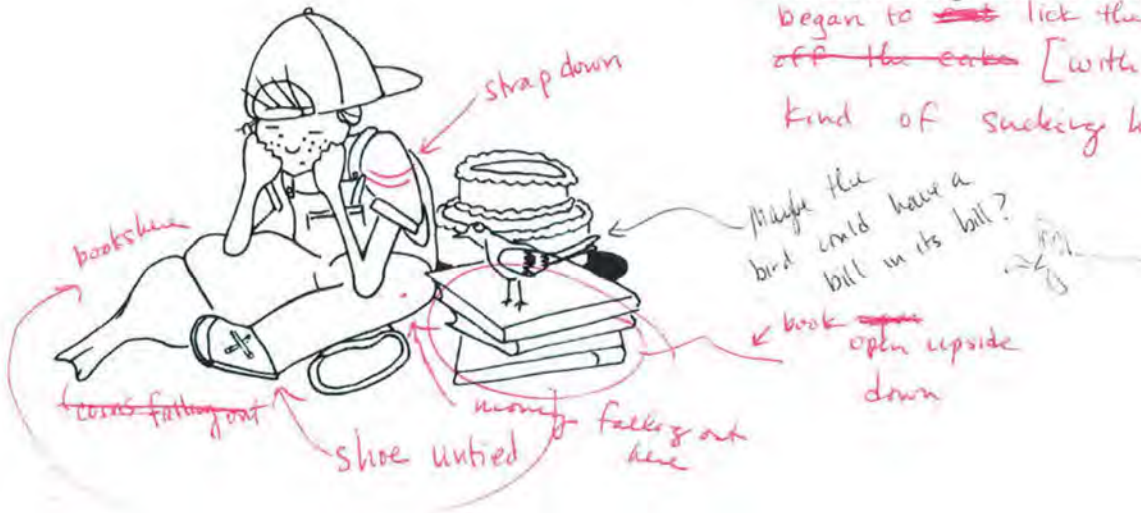 began to eat lick the
off the cake [with
kind of sucking
strap down
books here
Maybe the
bird could have a
bill in its bill?
book
open upside
down
coins falling out
money falling out
here
shoe untied